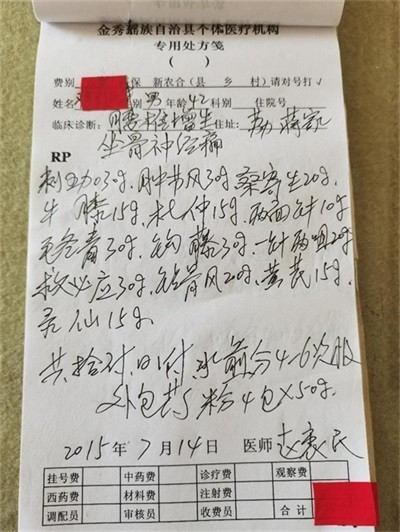 金秀瑶族自治县个体医疗机构
专用处方笺
( )
费别 保 新农合(县 乡 村)请对号打√
姓名 别 男 年龄 42 科别 住院号
临床诊断: 腰椎增生 住址:
坐骨神经痛
RP
30g. 肿节风30g 桑寄生20g.
牛膝15g. 杜仲15g. 两面针10g
30g. 钩藤30g. 一针两咀20g
救必应30g. 钻骨风20g. 黄芪15g.
灵仙15g.
水煎分4-6次服
外包药粉4包×50g.
2015年7月14日 医师
挂号费 中药费 诊疗费 观察费
西药费 材料费 注射费
调配员 审核员 收费员 合计